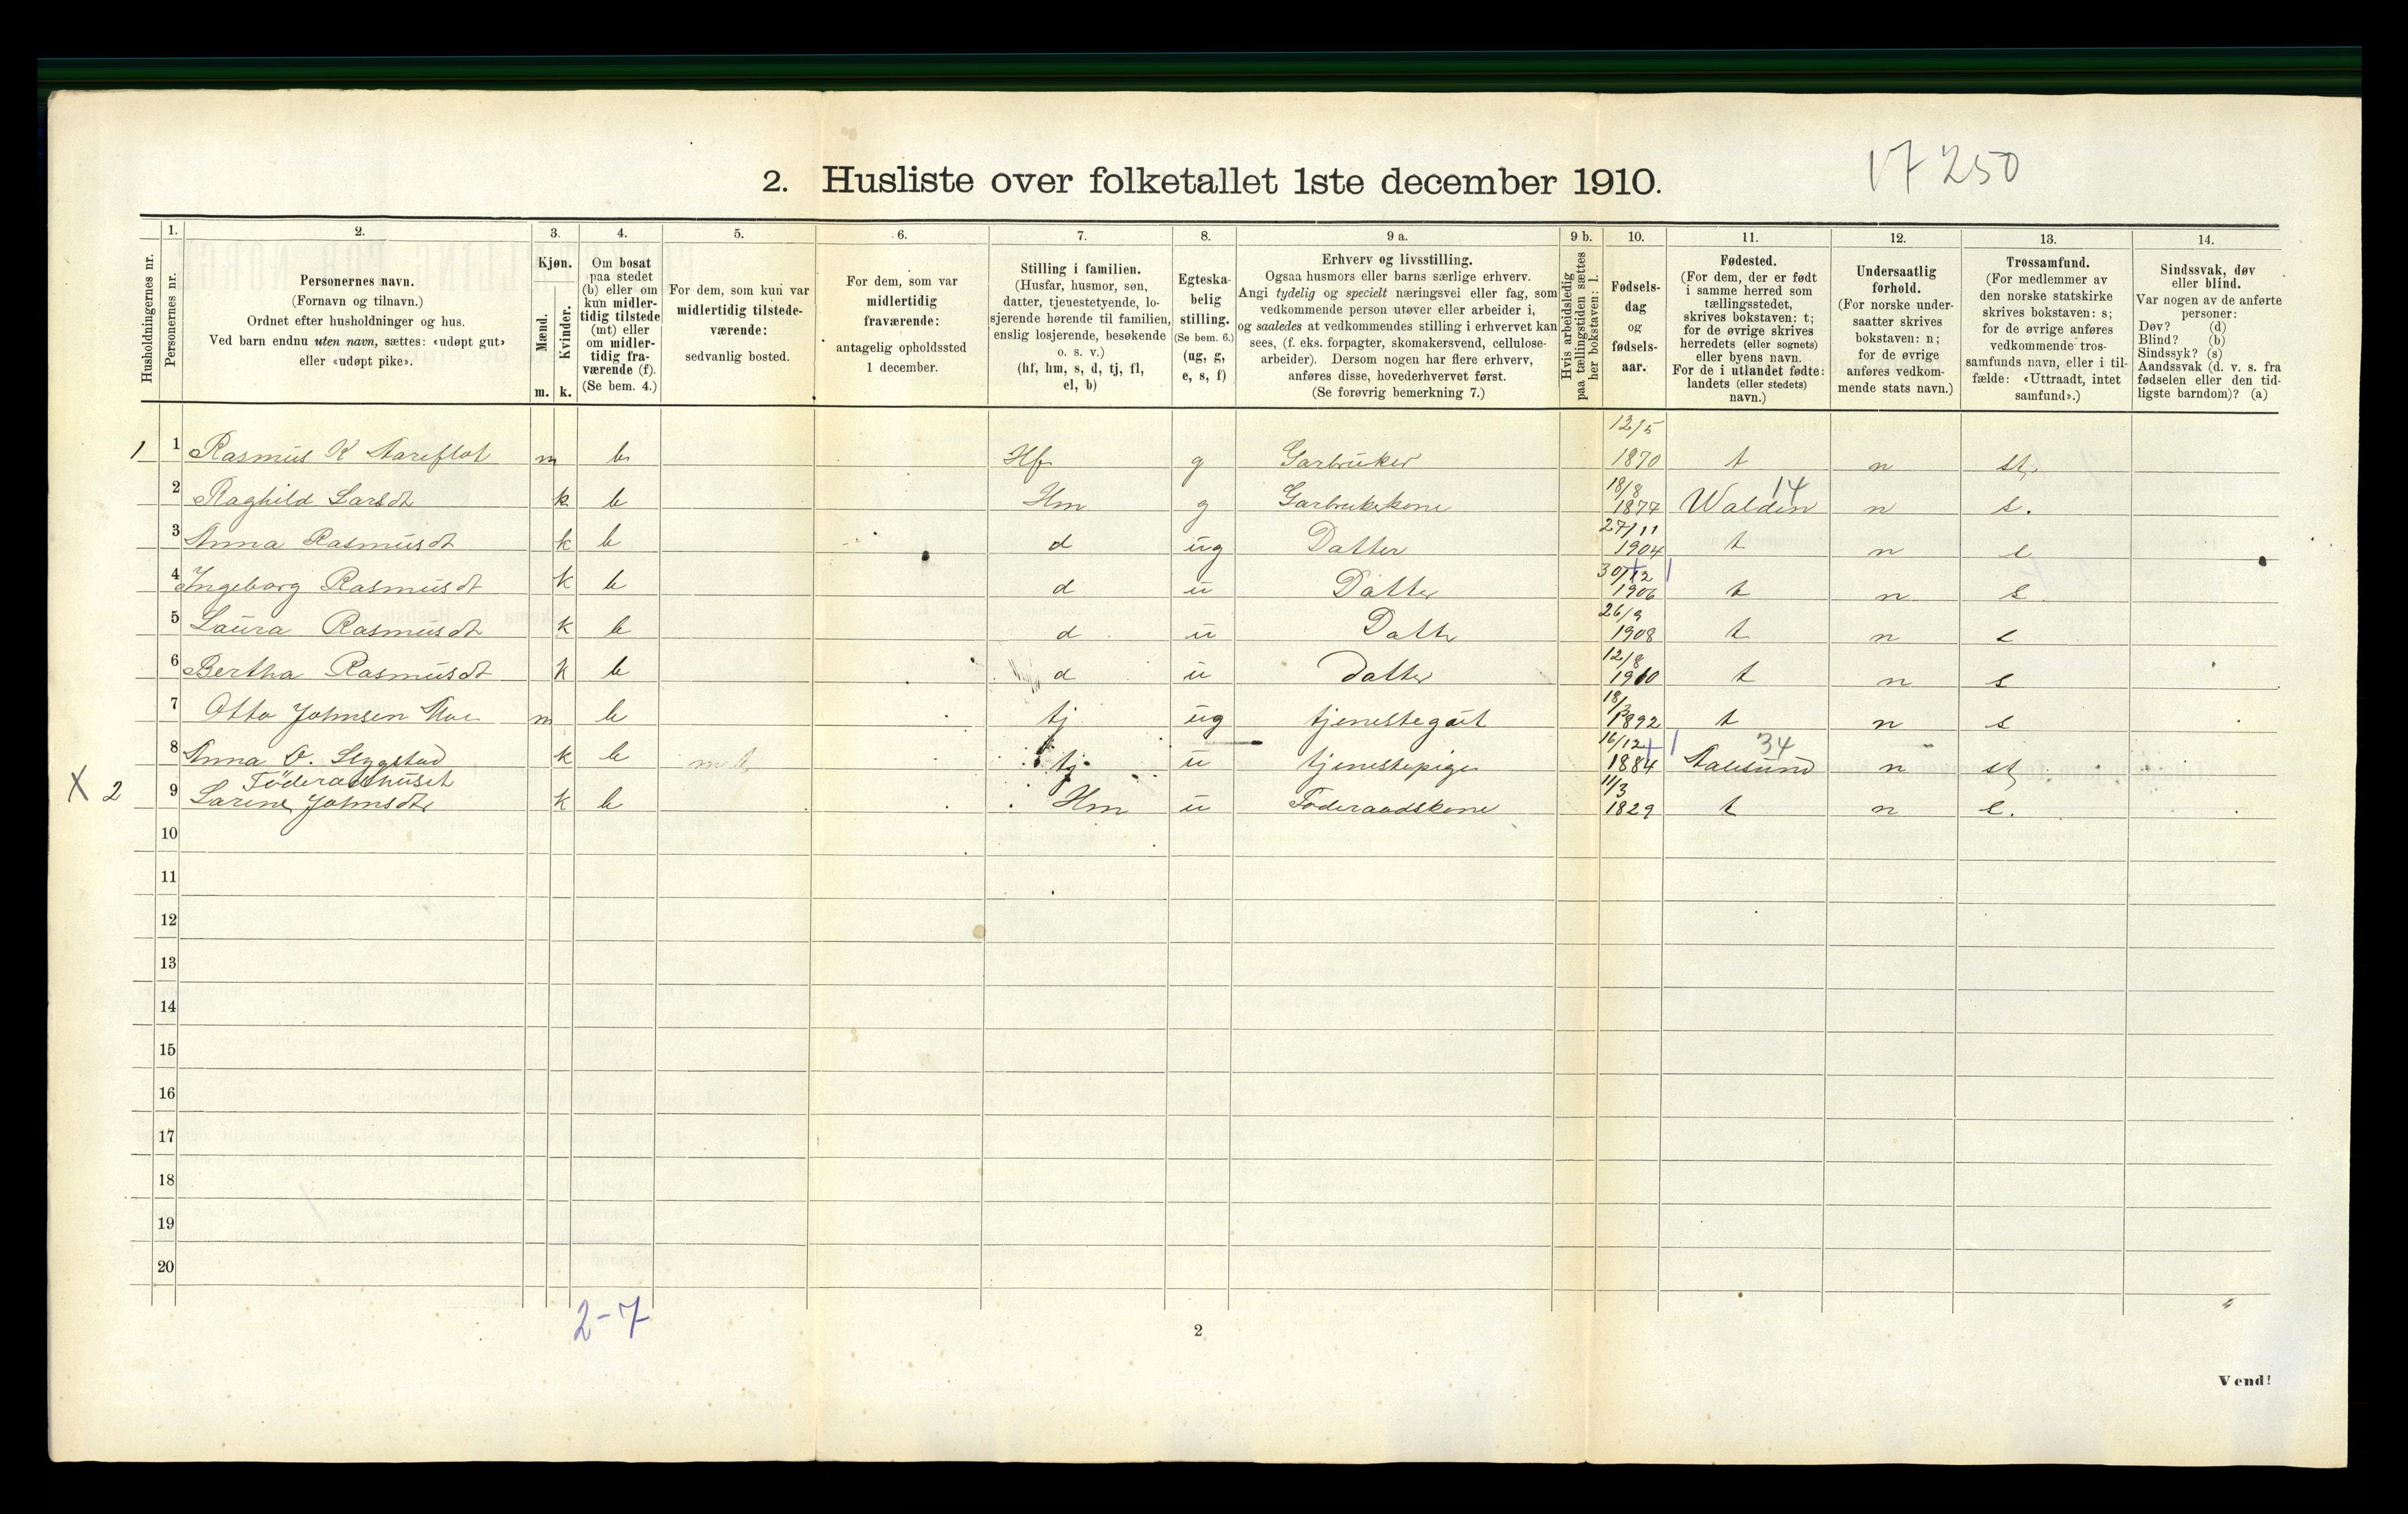 17250
2. Husliste over folketallet 1ste december 1910.
Husholdningernes nr.
1. Personernes nr.
2. Personernes navn.
(Fornavn og tilnavn.)
Ordnet efter husholdninger og hus.
Ved barn endnu uten navn, sættes: «udøpt gut»
eller «udøpt pike».
3. Kjøn.
Mænd. m.
Kvinder. k.
4. Om bosat
paa stedet
(b) eller om
kun midler-
tidig tilstede
(mt) eller
om midler-
tidig fra-
værende (f).
(Se bem. 4.)
5. For dem, som kun var
midlertidig tilstede-
værende:
sedvanlig bosted.
6. For dem, som var
midlertidig
fraværende:
antagelig opholdssted
1 december.
7. Stilling i familien.
(Husfar, husmor, søn,
datter, tjenestetyende, lo-
sjerende hørende til familien,
enslig losjerende, besøkende
o. s. v.)
(hf, hm, s, d, tj, fl,
el, b)
8. Egteska-
belig
stilling.
(Se bem. 6.)
(ug, g,
e, s, f)
9 a. Erhverv og livsstilling.
Ogsaa husmors eller barns særlige erhverv.
Angi tydelig og specielt næringsvei eller fag, som
vedkommende person utøver eller arbeider i,
og saaledes at vedkommendes stilling i erhvervet kan
sees, (f. eks. forpagter, skomakersvend, cellulose-
arbeider). Dersom nogen har flere erhverv,
anføres disse, hovederhvervet først.
(Se forøvrig bemerkning 7.)
9 b. Hvis arbeidsledig
paa tællingstiden sættes
her bokstaven: l.
10. Fødsels-
dag
og
fødsels-
aar.
11. Fødested.
(For dem, der er født
i samme herred som
tællingsstedet,
skrives bokstaven: t;
for de øvrige skrives
herredets (eller sognets)
eller byens navn.
For de i utlandet fødte:
landets (eller stedets)
navn.)
12. Undersaatlig
forhold.
(For norske under-
saatter skrives
bokstaven: n;
for de øvrige
anføres vedkom-
mende stats navn.)
13. Trossamfund.
(For medlemmer av
den norske statskirke
skrives bokstaven: s;
for de øvrige anføres
vedkommende tros-
samfunds navn, eller i til-
fælde: «Uttraadt, intet
samfund».)
14. Sindssvak, døv
eller blind.
Var nogen av de anførte
personer:
Døv? (d)
Blind? (b)
Sindssyk? (s)
Aandssvak (d. v. s. fra
fødselen eller den tid-
ligste barndom)? (a)
1 1 Rasmus K m b Hf g Garbruker 12/5 1870 t n st.
2 Raghild Larsdt k b Hm g Garbrukerkone 18/8 1874 Walden 14 n s.
3 Anna Rasmusdt k b d ug Datter 27/11 1904 t n s
4 Ingeborg Rasmusdt k b d u Datter 30/12 1906 t n s
5 Laura Rasmusdt k b d u Datter 26/9 1908 t n s
6 Bertha Rasmusdt k b d u datter 12/8 1910 t n s
7 Otto Johnsen Moe m b tj ug tjenestegut 18/3 1892 t n s
8 Anna O. k b tj u tjenestepige 16/12 1884 Aalesund 34 n st
Föderaadhuset
X 2 9 Larine Johnsdt k b Hm u Föderaadskone 11/3 1829 t n s.
10
11
12
13
14
15
16
17
18
19
20
2-7
2
Vend!